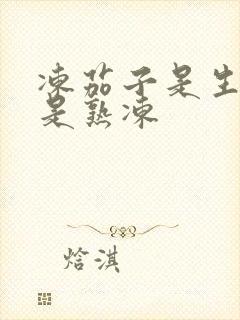 凍茄子是生
是熟凍
焓淇